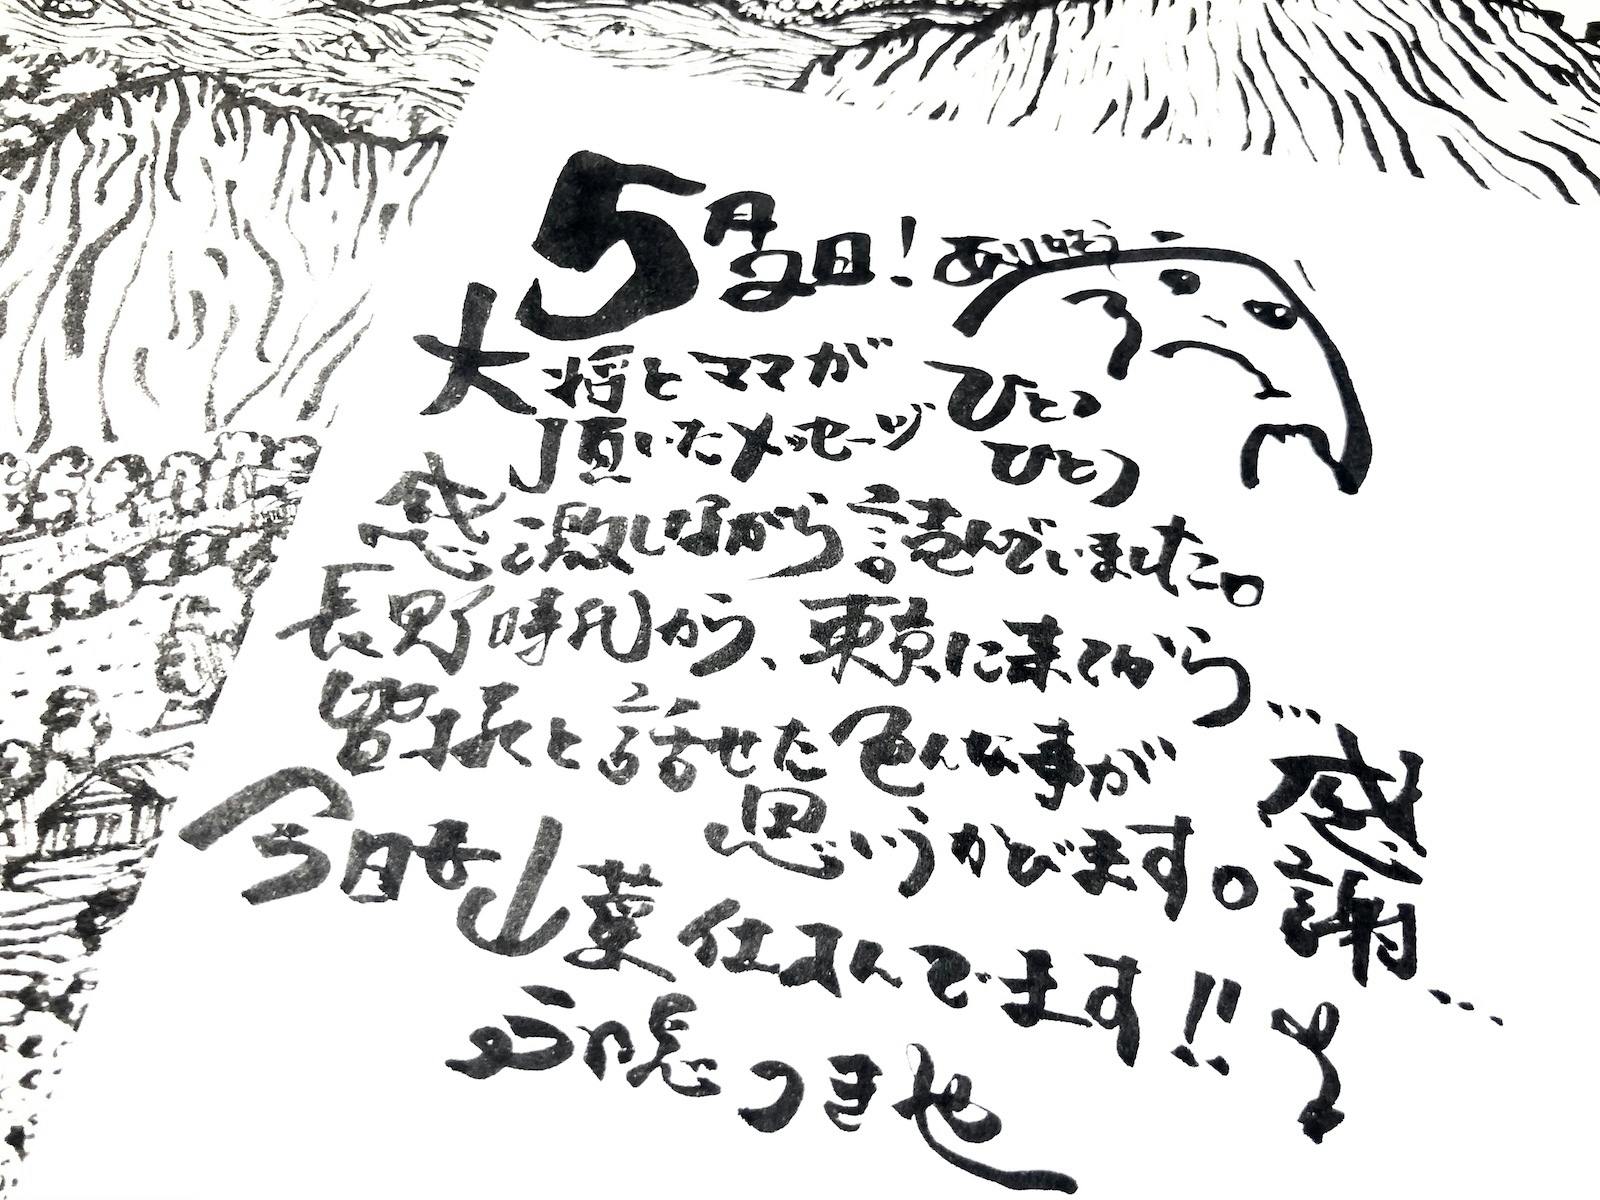 5月2日! ありがとう
大将とママが
頂いたメッセージ
ひとつ
ひとつ
感激しながら読んでいました。
長野時代から、東京に来てから…
皆様と話せた色んな事が
思いうかびます。
感謝…
今日も山菜仕込んでます!!
つき也